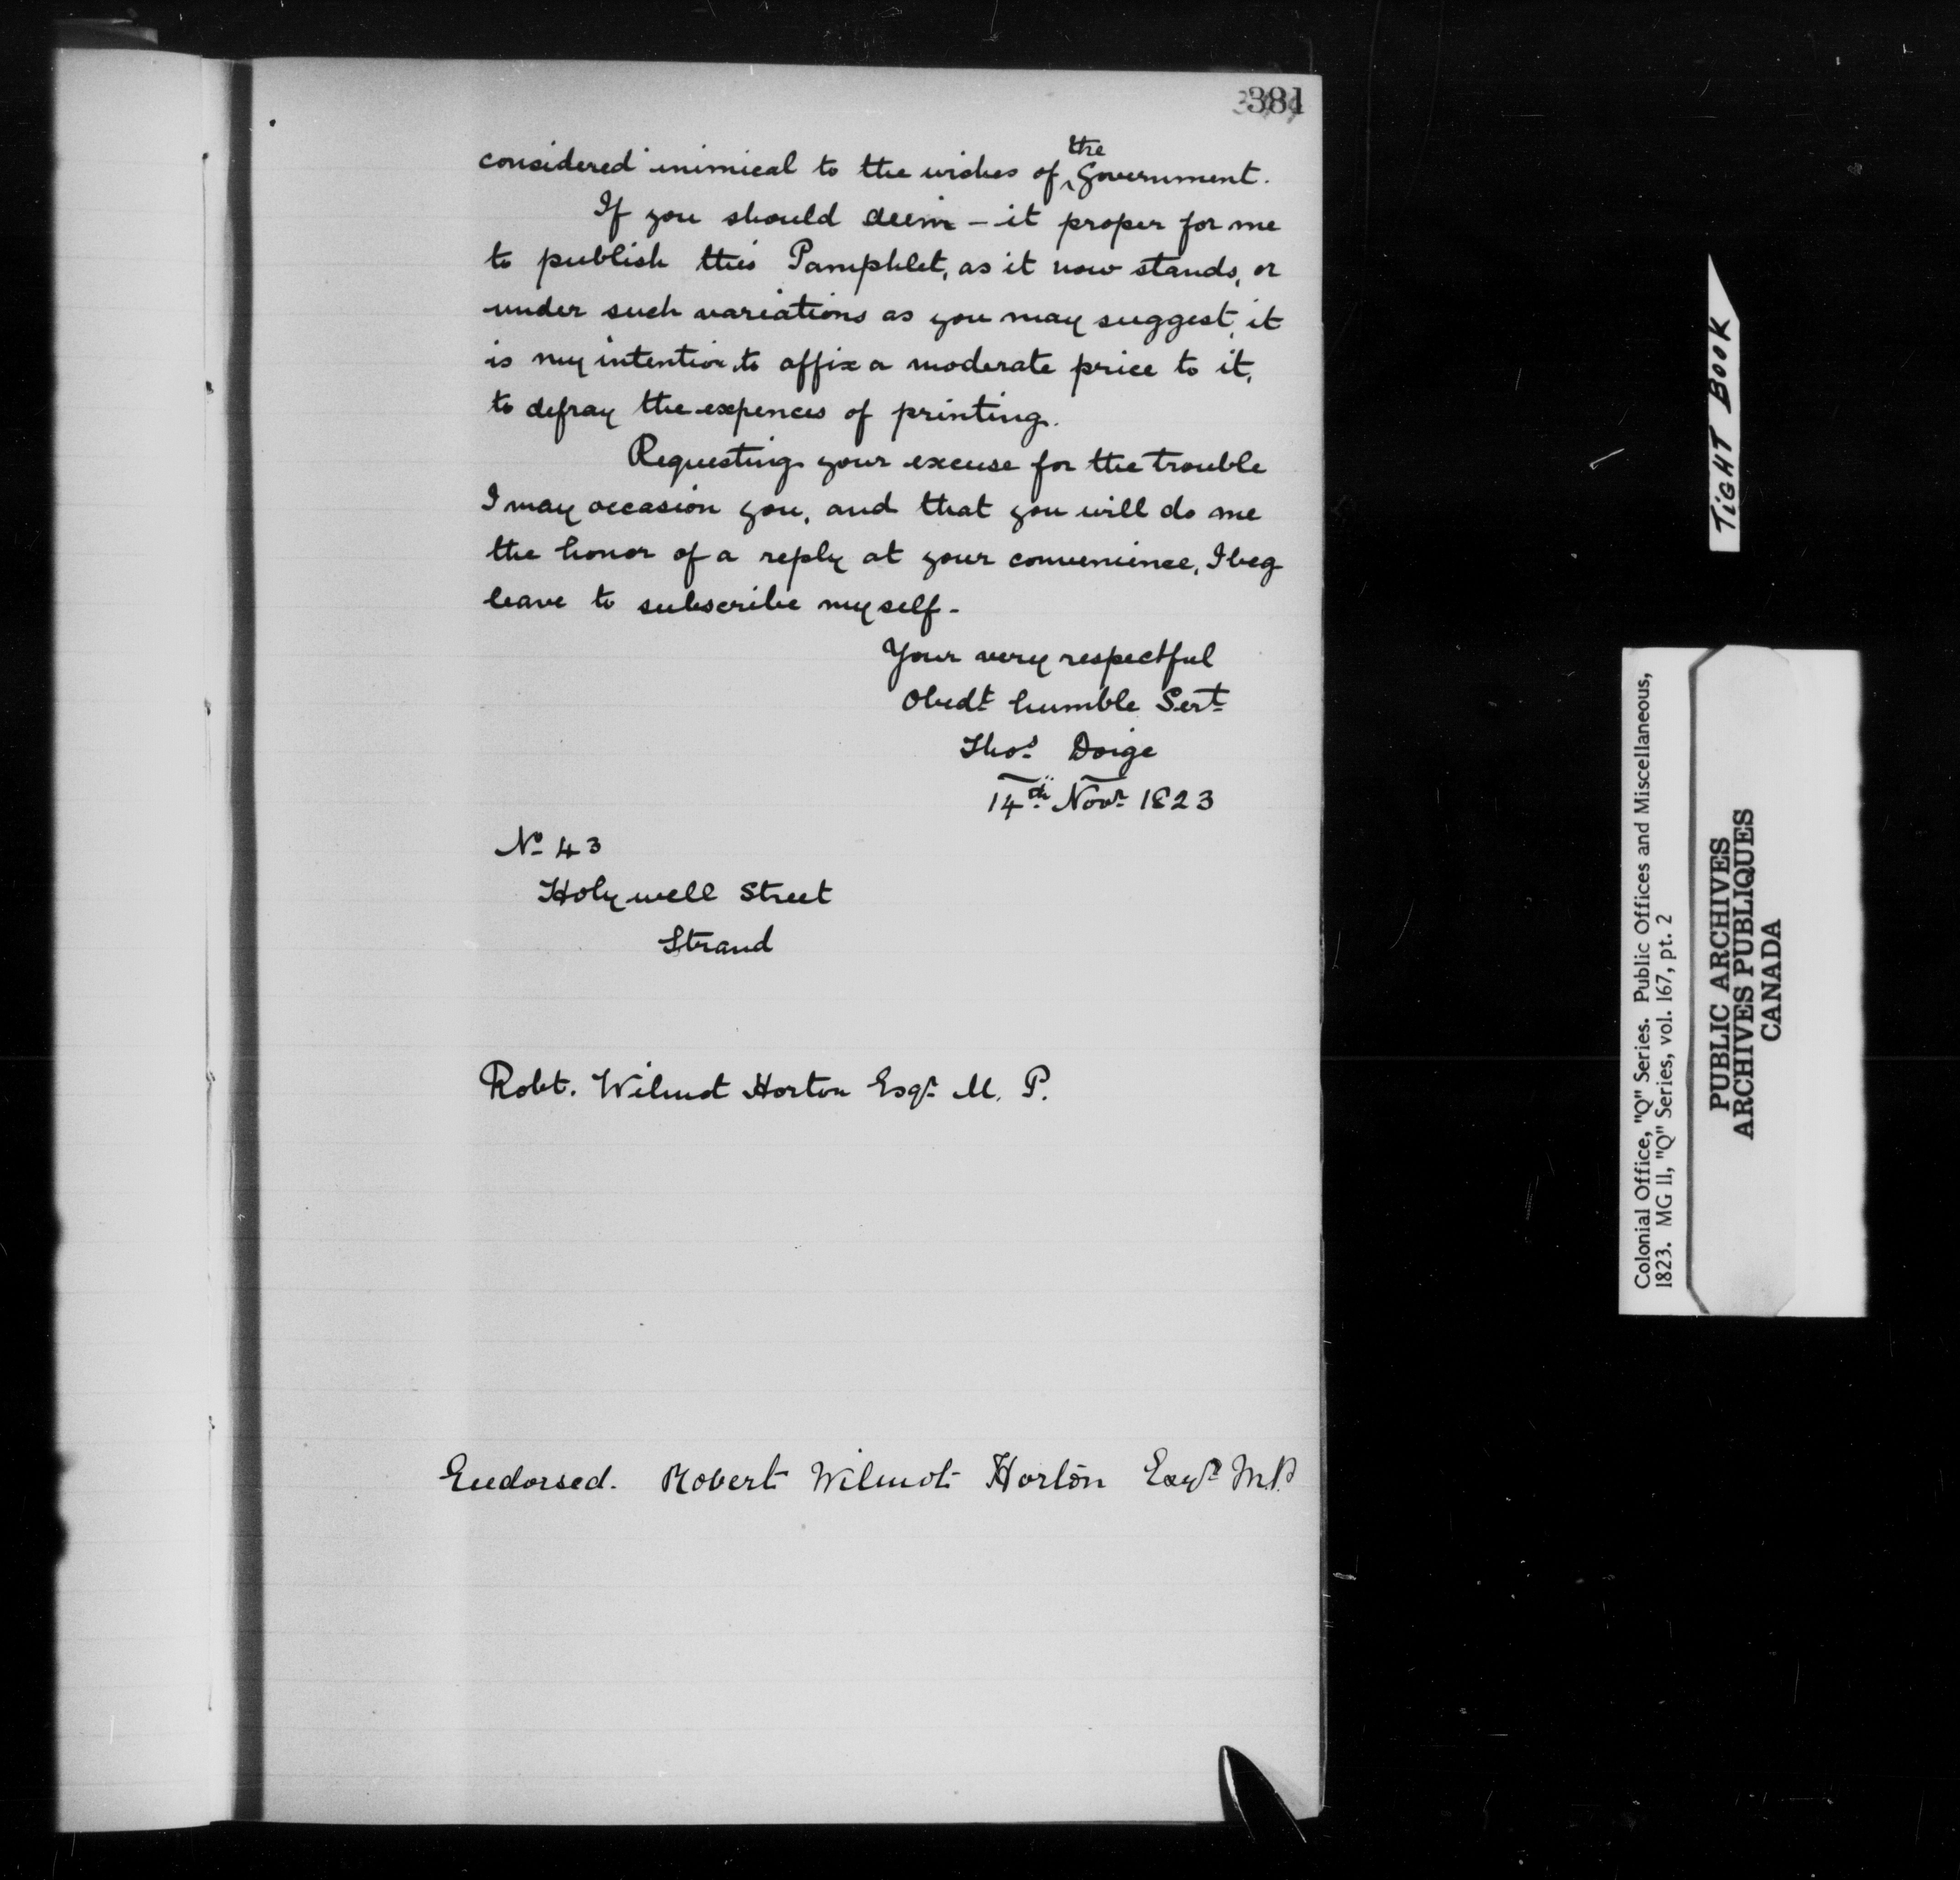 381
considered inimical to the wishes of the Government.
If you should deem - it proper for me
to publish this Pamphlet, as it now stands, or
under such variations as you may suggest, it
is my intention to affix a moderate price to it,
to defray the expences of printing.
Requesting your excuse for the trouble
I may occasion you, and that you will do me
the honor of a reply at your convenience, I beg
leave to subscribe myself -
Your very respectful
Obedt humble Sert
Thos Doige
14th Novr 1823
No 43
Holywell Street
Strand
Robt. Wilmot Horton Esqr M. P.
Endorsed. Robert Wilmot Horton Esqr M.P.
TIGHT BOOK
Colonial Office, "Q" Series. Public Offices and Miscellaneous,
1823. MG 11, "Q" Series, vol. 167, pt. 2
PUBLIC ARCHIVES
ARCHIVES PUBLIQUES
CANADA